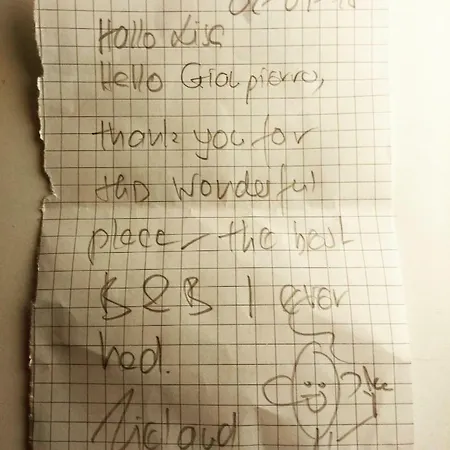 Hallo Lisa
Hello Giaipierro,
thank you for
this wonderful
place – the best
B&B I ever
had.